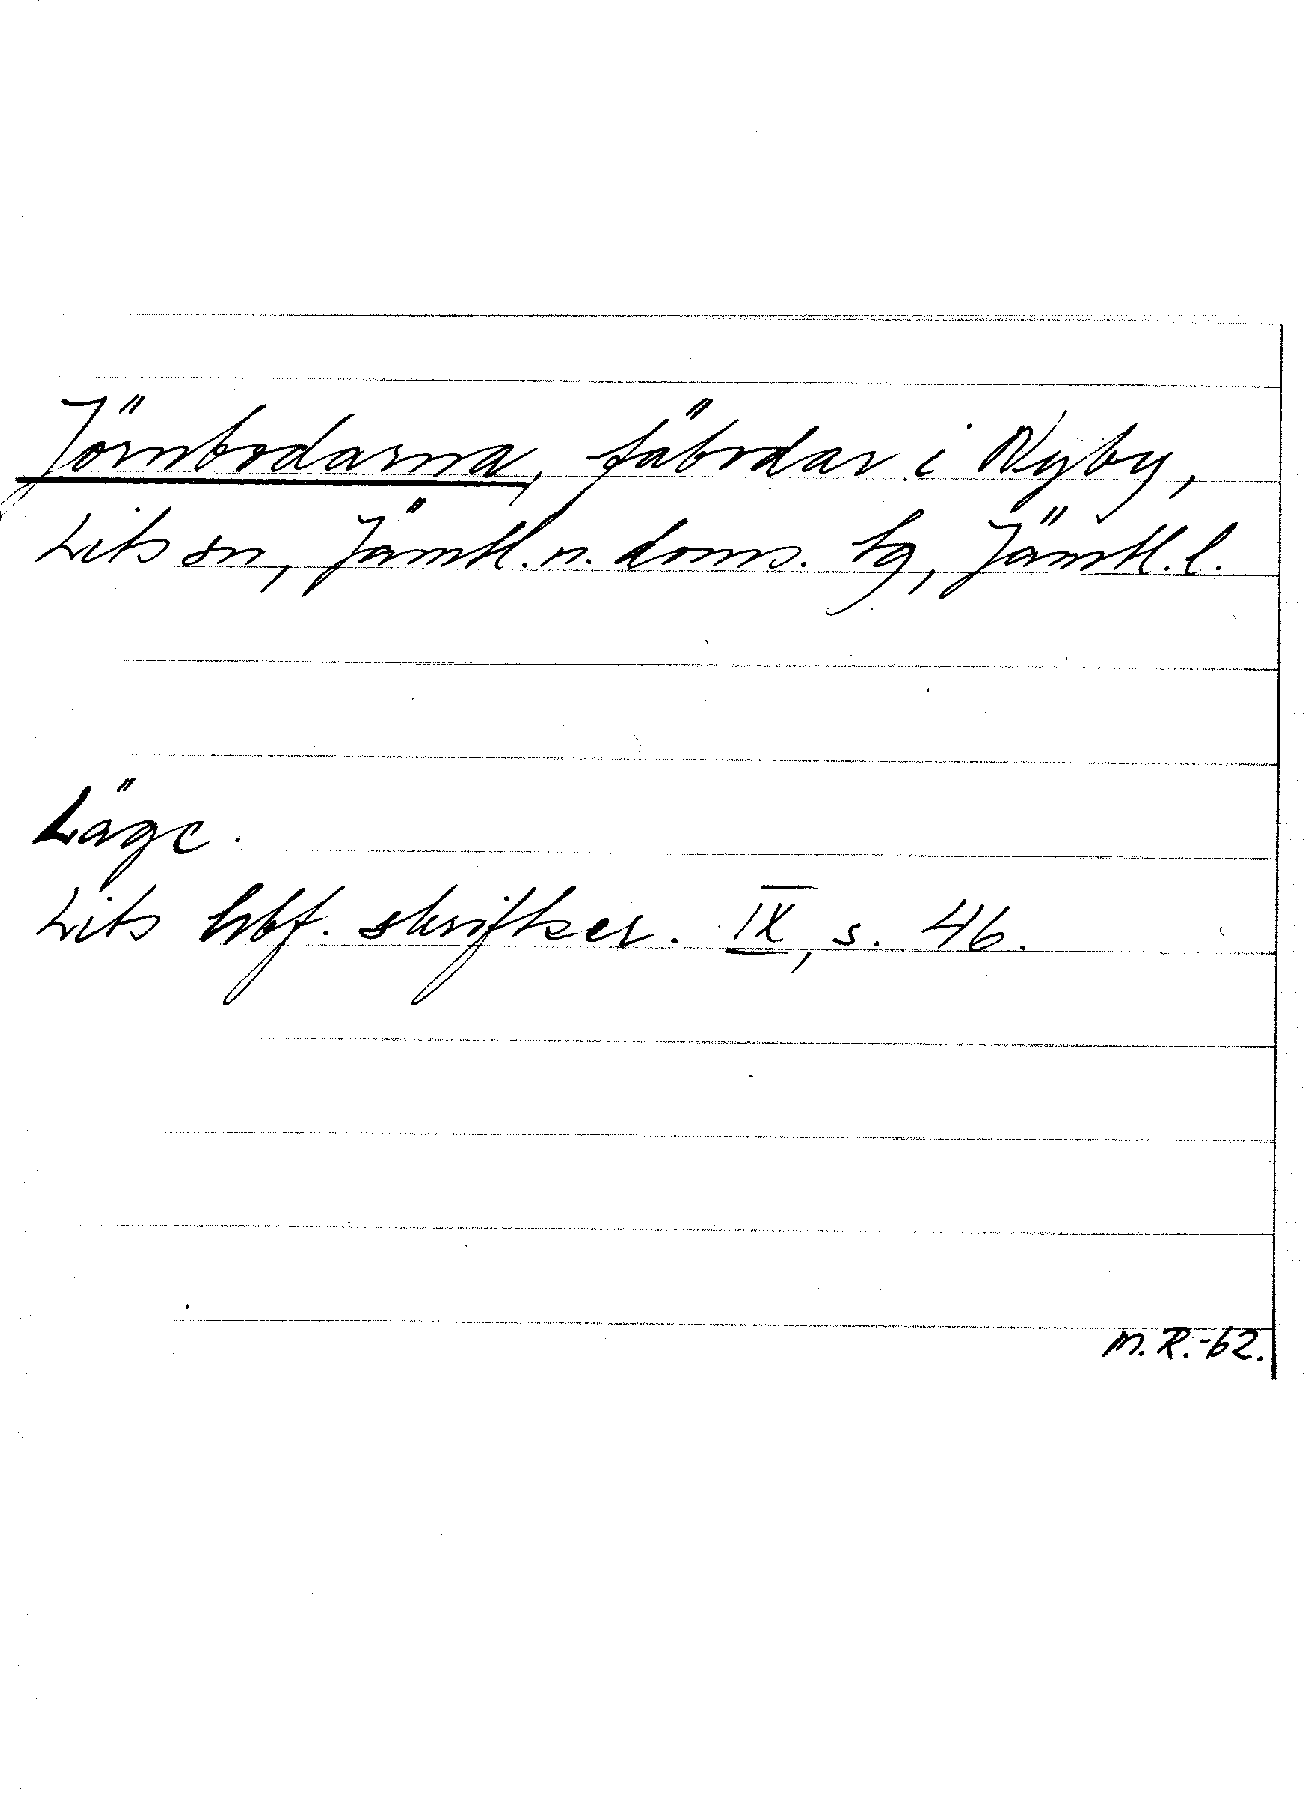 Jörnbodarna, fäbodar i Nyby,
Lits sn, Jämtl. n. doms. tg, Jämtl. l.
Läge.
Lits hbf. skriftser. IX, s. 46.
M. R. -62.